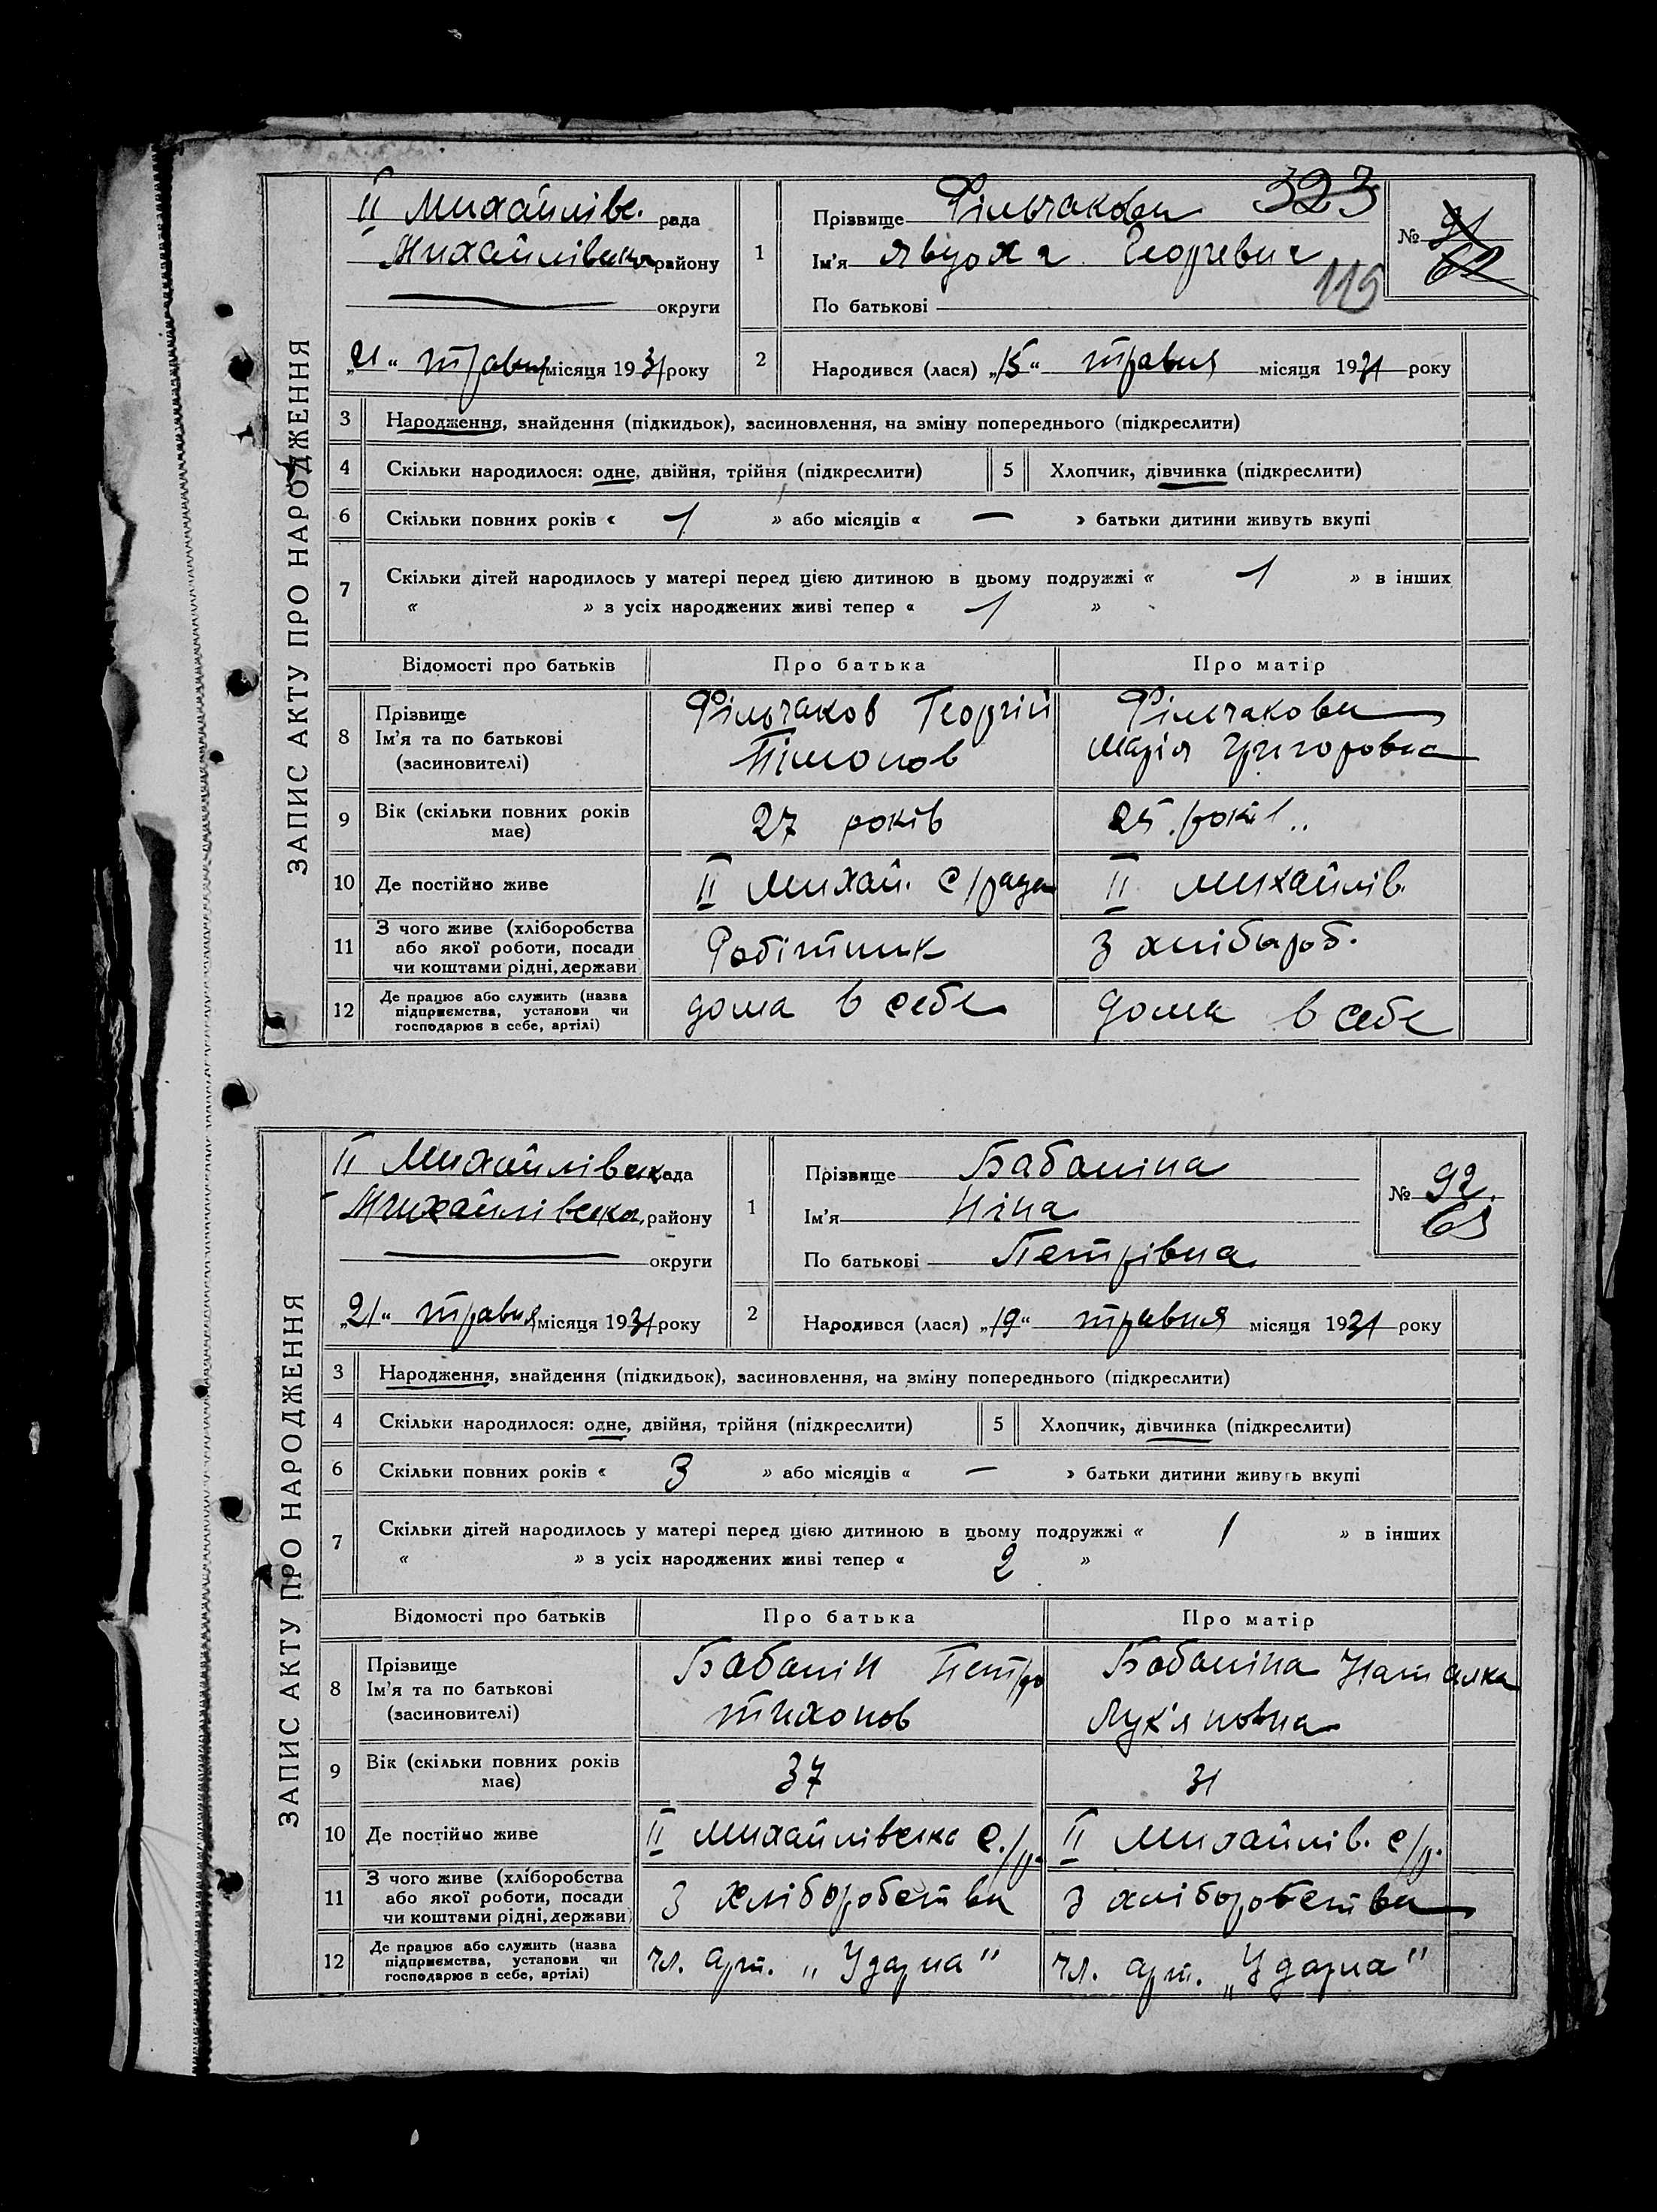 ЗАПИС АКТУ ПРО НАРОДЖЕННЯ
II Михайлівс. рада
Михайлівська району
округи
323
1 Прізвище Фільчакова
Ім'я Явдоха Георгевич
По батькові
115
№ 91
62
„21“ травня місяця 1931 року
2 Народився (лася) „15“ травня місяця 1931 року
3 Народження, знайдення (підкидьок), засиновлення, на зміну попереднього (підкреслити)
4 Скільки народилося: одне, двійня, трійня (підкреслити) 5 Хлопчик, дівчинка (підкреслити)
6 Скільки повних років « 1 » або місяців « — » батьки дитини живуть вкупі
7 Скільки дітей народилось у матері перед цією дитиною в цьому подружжі « 1 » в інших
« » з усіх народжених живі тепер « 1 »
Відомості про батьків Про батька Про матір
8 Прізвище
Ім'я та по батькові
(засиновителі)
Фільчаков Георгій
Тімонов
Фільчакова
Марія Григоровна
9 Вік (скільки повних років має) 27 років 25 років
10 Де постійно живе II Михай. с/рада II Михайлів.
11 З чого живе (хліборобства
або якої роботи, посади
чи коштами рідні, держави
Робітник З хлібороб.
12 Де працює або служить (назва
підприємства, установи чи
господарює в себе, артілі)
дома в себе дома в себе
ЗАПИС АКТУ ПРО НАРОДЖЕННЯ
II Михайлівська рада
Михайлівська району
округи
1 Прізвище Бабаніна
Ім'я Ніна
По батькові Петрівна
№ 92.
63
„21“ травня місяця 1931 року
2 Народився (лася) „19“ травня місяця 1931 року
3 Народження, знайдення (підкидьок), засиновлення, на зміну попереднього (підкреслити)
4 Скільки народилося: одне, двійня, трійня (підкреслити) 5 Хлопчик, дівчинка (підкреслити)
6 Скільки повних років « 3 » або місяців « — » батьки дитини живуть вкупі
7 Скільки дітей народилось у матері перед цією дитиною в цьому подружжі « 1 » в інших
« » з усіх народжених живі тепер « 2 »
Відомості про батьків Про батька Про матір
8 Прізвище
Ім'я та по батькові
(засиновителі)
Бабанін Петро
Тихонов
Бабаніна Наталка
Лук'яновна
9 Вік (скільки повних років має) 37 31
10 Де постійно живе II Михайлівська с./р. II Михайлів. с/р.
11 З чого живе (хліборобства
або якої роботи, посади
чи коштами рідні, держави
З хліборобства З хліборобства
12 Де працює або служить (назва
підприємства, установи чи
господарює в себе, артілі)
чл. арт. „Ударна" чл. арт. „Ударна"